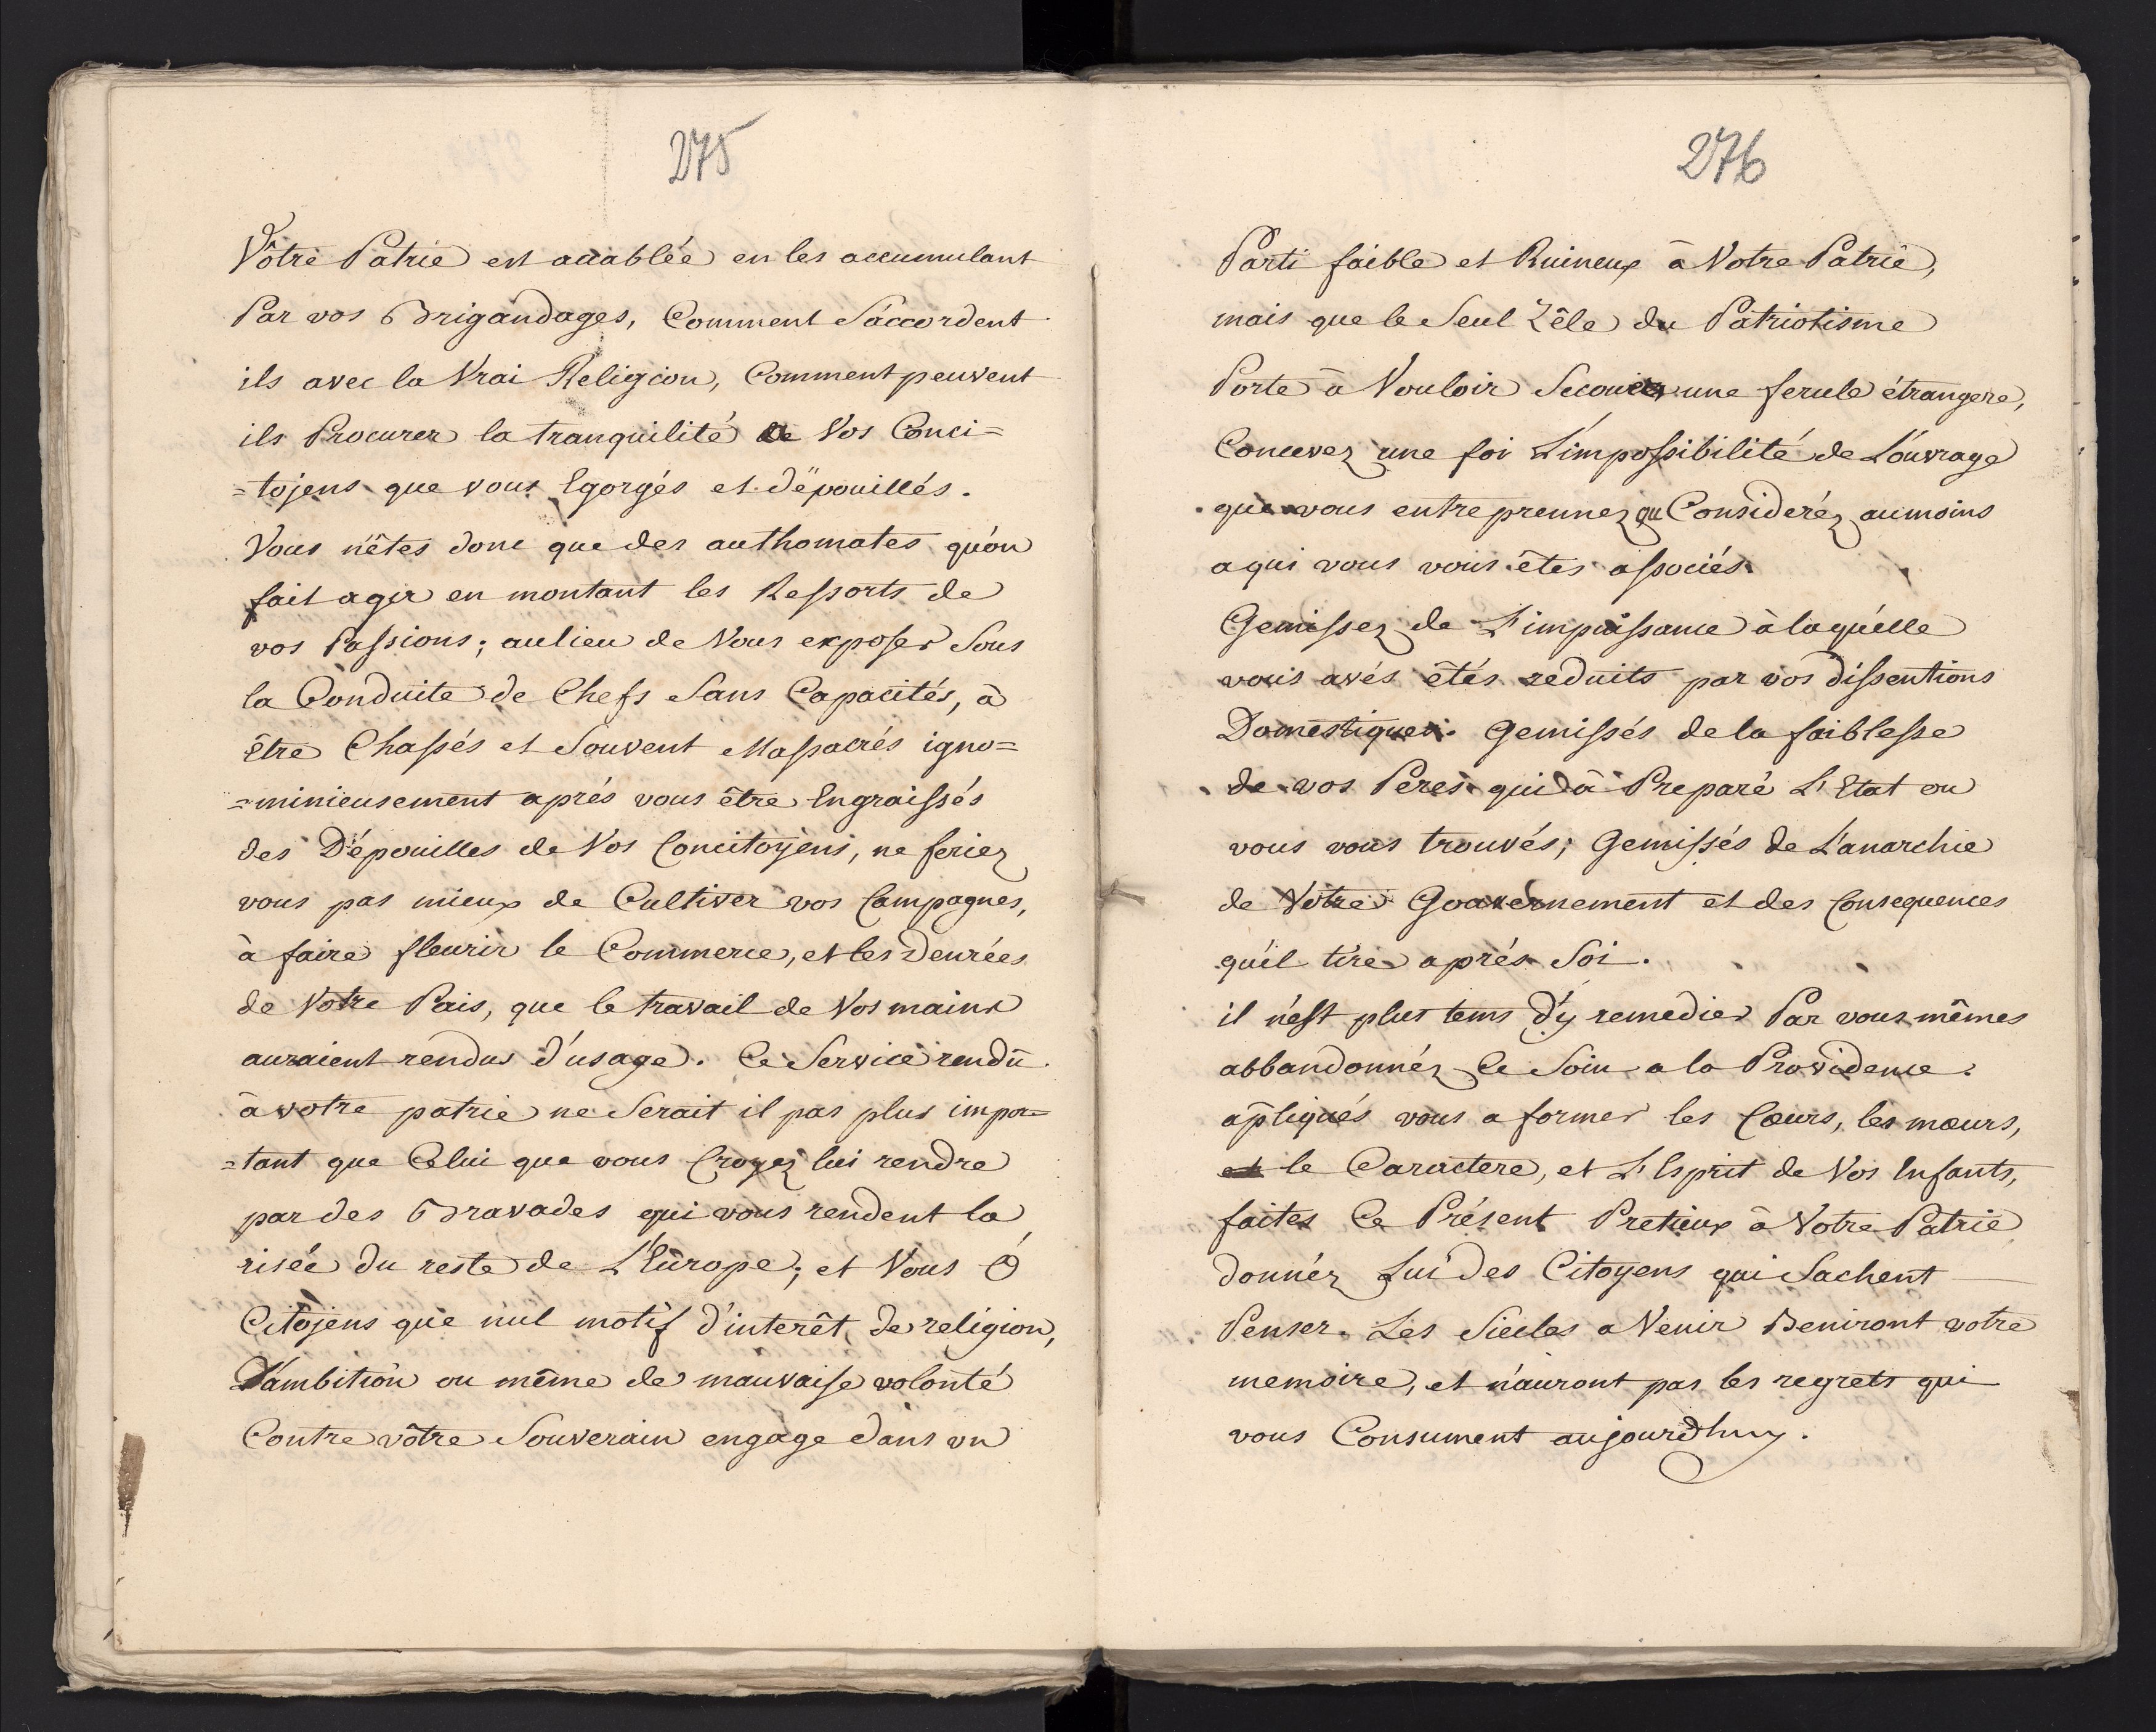 275
Vôtre Patrie est accablée en les accumulant
Par vos Brigandages, Comment S'accordent
ils avec la Vrai Religion, Comment peuvent
ils Procurer la tranquilité de Vos Conci=
=tojens que vous Egorgés et dépouillés.
Vous n'êtes donc que des authomates qu'on
fait agir en montant les Ressorts de
vos Passions; aulieu de Vous exposer Sous
la Conduite de Chefs Sans Capacités, à
être Chassés et Souvent Massacrés igno=
=minieusement aprés vous être Engraissés
des Dépouilles de Vos Concitoyens, ne feriez
vous pas mieux de Cultiver vos Campagnes,
à faire fleurir le Commerce, et les denrées
de Votre Pais, que le travail de Vos mains
auraient rendus d'usage. Ce Service rendû
à votre patrie ne Serait il pas plus impor=
=tant que Celui que vous Croyez lui rendre
par des Bravades qui vous rendent la
risée du reste de L'Europe; et Vous Ó
Citojens que nul motif d'interêt, de religion,
D'ambition ou même de mauvaise volonté
Contre vôtre Souverain engage dans un
276
Parti faible et Ruineux à Votre Patrie,
mais que le Seul Zêle du Patriotisme
Porte à Vouloir Secouer une ferule étrangere,
Concevez une foi L'impossibilité de L'ouvrage
que vous entreprennez ou Consideréz aumoins
a qui vous vous êtes associés.
Gemissez de L'impuissance à laquélle
vous avés êtés reduits par vos dissentions
Domestiques. Gemissés de la faiblesse
de vos Peres qui à Preparé L'Etat ou
vous vous trouvés; Gemissés de L'anarchie
de Votre Gouvernement et des Consequences
qu'il tire aprés Soi.
il n'est plus tems d'y remedier Par vous mêmes
abbandonnéz Ce Soin a la Providence.
apliqués vous a former les Cœurs, les mœurs,
et le Caractere, et L'Esprit de Vos Enfants,
faites Ce Présent Pretieux à Votre Patrie
donnéz Lui des Citoyens qui Sachent
Penser. Les Siecles a Venir Beniront votre
memoire, et n'auront pas les regrets qui
vous Consument aujourdhuy.